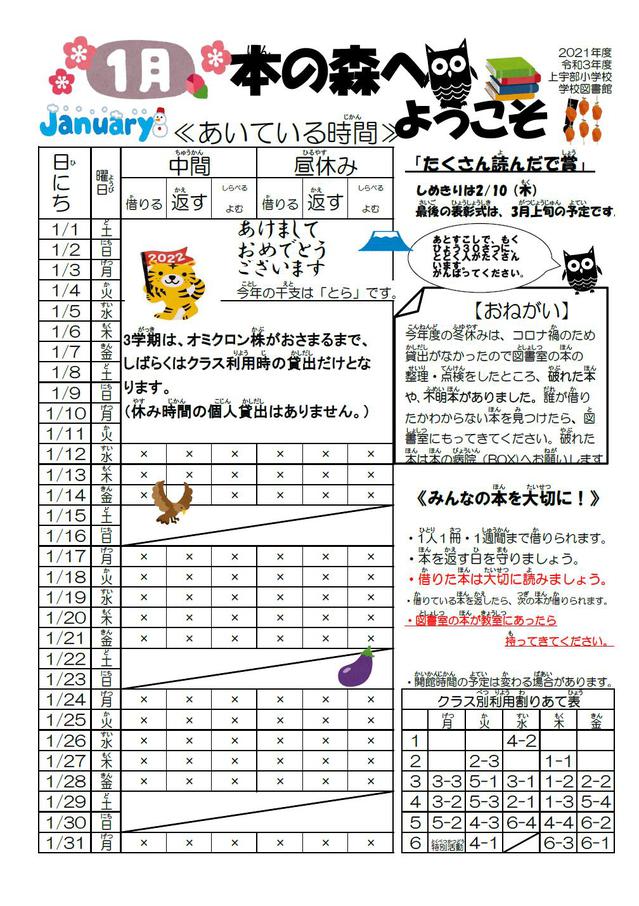 1月
本の森へ
ようこそ
2021年度
令和3年度
上宇部小学校
学校図書館
January
≪あいている時間≫
日にち 曜日 中間 昼休み
借りる 返す しらべる よむ 借りる 返す しらべる よむ
1/1 土
1/2 日
1/3 月
1/4 火
1/5 水
1/6 木
1/7 金
1/8 土
1/9 日
1/10 月
1/11 火
1/12 水 × × × × × ×
1/13 木 × × × × × ×
1/14 金 × × × × × ×
1/15 土
1/16 日
1/17 月 × × × × × ×
1/18 火 × × × × × ×
1/19 水 × × × × × ×
1/20 木 × × × × × ×
1/21 金 × × × × × ×
1/22 土
1/23 日
1/24 月 × × × × × ×
1/25 火 × × × × × ×
1/26 水 × × × × × ×
1/27 木 × × × × × ×
1/28 金 × × × × × ×
1/29 土
1/30 日
1/31 月 × × × × × ×
あけまして
おめでとう
ございます
2022
今年の干支は「とら」です。
3学期は、オミクロン株がおさまるまで、
しばらくはクラス利用時の貸出だけとな
ります。
(休み時間の個人貸出はありません。)
「たくさん読んだで賞」
しめきりは2/10(木)
最後の表彰式は、3月上旬の予定です
あとすこしで、もく
ひょう30さつに、
とどく人がたくさん
います。
がんばってください。
【おねがい】
今年度の冬休みは、コロナ禍のため
貸出がなかったので図書室の本の
整理・点検をしたところ、破れた本
や、不明本がありました。誰が借り
たかわからない本を見つけたら、図
書室にもってきてください。破れた
本は本の病院(BOX)へお願いします
≪みんなの本を大切に!≫
・1人1冊・1週間まで借りられます。
・本を返す日を守りましょう。
・借りた本は大切に読みましょう。
・借りている本を返したら、次の本が借りられます。
・図書室の本が教室にあったら
持ってきてください。
・開館時間の予定は変わる場合があります。
クラス別利用割りあて表
月 火 水 木 金
1 4-2
2 2-3 1-1
3 3-3 5-1 3-1 1-2 2-2
4 3-2 5-3 2-1 1-3 5-4
5 5-2 4-3 6-4 4-4 6-2
6 特別活動 4-1 6-3 6-1